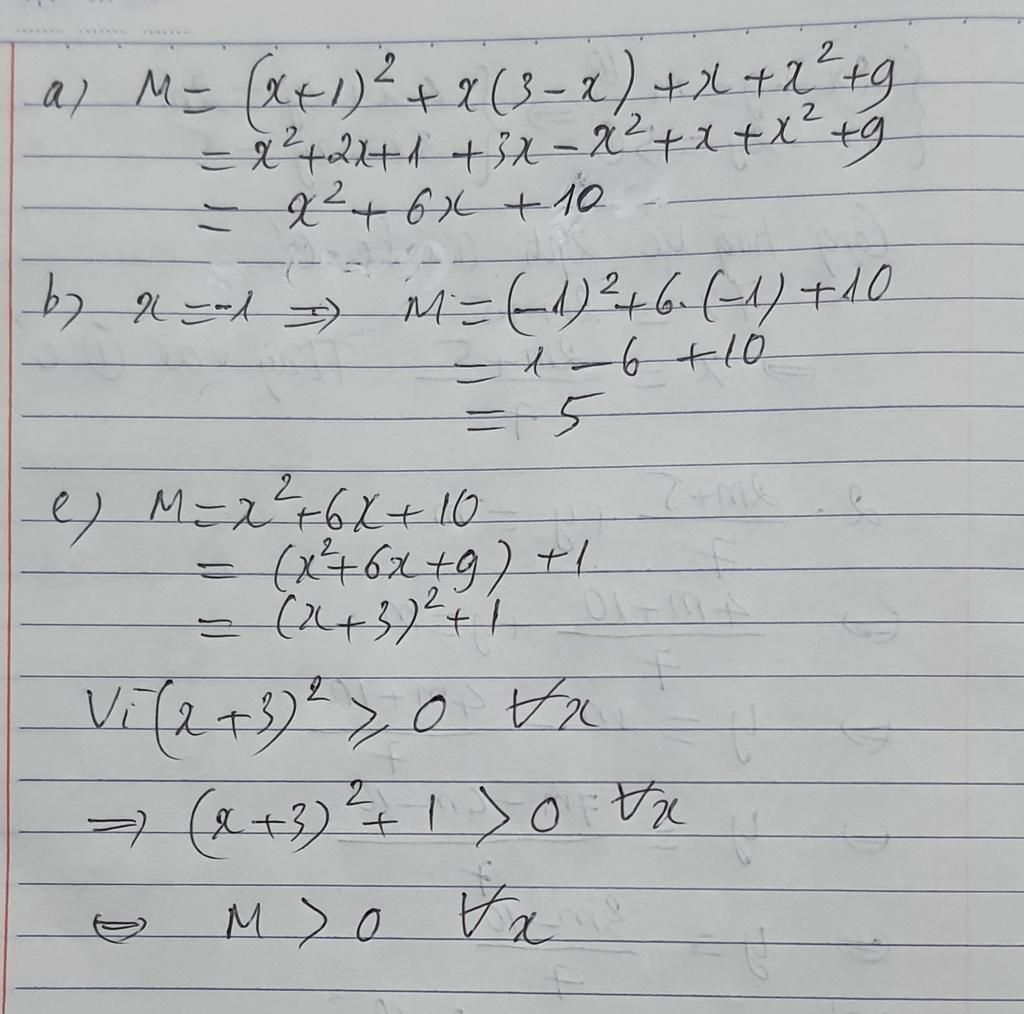 a) M = (x+1)² + x(3-x) + x + x² + 9
= x² + 2x + 1 + 3x - x² + x + x² + 9
= x² + 6x + 10
b) x = -1 ⇒ M = (-1)² + 6.(-1) + 10
= 1 - 6 + 10
= 5
c) M = x² + 6x + 10
= (x² + 6x + 9) + 1
= (x+3)² + 1
Vì (x+3)² ≥ 0 ∀x
⇒ (x+3)² + 1 > 0 ∀x
⇔ M > 0 ∀x